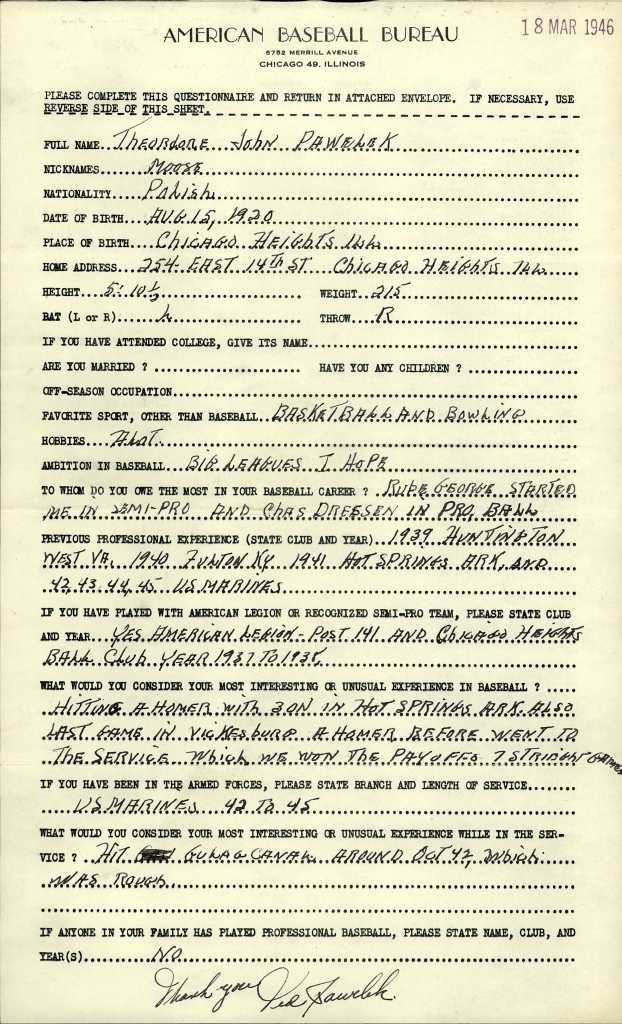 AMERICAN BASEBALL BUREAU
18 MAR 1946
6752 MERRILL AVENUE
CHICAGO 49, ILLINOIS
PLEASE COMPLETE THIS QUESTIONNAIRE AND RETURN IN ATTACHED ENVELOPE. IF NECESSARY, USE
REVERSE SIDE OF THIS SHEET.
FULL NAME Theordore John Pawelek
NICKNAMES Moose
NATIONALITY Polish
DATE OF BIRTH AUG 15, 1920
PLACE OF BIRTH CHICAGO HEIGHTS ILL
HOME ADDRESS 254 EAST 14TH ST CHICAGO HEIGHTS ILL
HEIGHT 5' 10½ WEIGHT 215
BAT (L or R) L THROW R
IF YOU HAVE ATTENDED COLLEGE, GIVE ITS NAME
ARE YOU MARRIED ? HAVE YOU ANY CHILDREN ?
OFF-SEASON OCCUPATION
FAVORITE SPORT, OTHER THAN BASEBALL BASKETBALL AND BOWLING
HOBBIES Alot
AMBITION IN BASEBALL BIG LEAGUES I HOPE
TO WHOM DO YOU OWE THE MOST IN YOUR BASEBALL CAREER ? RUBE GEORGE STARTED
ME IN SEMI-PRO AND CHAS DRESSEN IN PRO. BALL
PREVIOUS PROFESSIONAL EXPERIENCE (STATE CLUB AND YEAR) 1939 HUNTINGTON
WEST VA, 1940 FULTON KY 1941 HOT SPRINGS ARK, AND
42, 43, 44, 45 US MARINES
IF YOU HAVE PLAYED WITH AMERICAN LEGION OR RECOGNIZED SEMI-PRO TEAM, PLEASE STATE CLUB
AND YEAR YES AMERICAN LEGION - POST 141 AND CHICAGO HEIGHTS
BALL CLUB YEAR 1937 TO 1938,
WHAT WOULD YOU CONSIDER YOUR MOST INTERESTING OR UNUSUAL EXPERIENCE IN BASEBALL ?
HITTING A HOMER WITH 3 ON IN HOT SPRINGS ARK. ALSO
LAST GAME IN VICKESBURG A HOMER BEFORE WENT TO
THE SERVICE WHICH WE WON THE PAYOFFS 7 STRIGHT GAMES
IF YOU HAVE BEEN IN THE ARMED FORCES, PLEASE STATE BRANCH AND LENGTH OF SERVICE
US MARINES 42 TO 45
WHAT WOULD YOU CONSIDER YOUR MOST INTERESTING OR UNUSUAL EXPERIENCE WHILE IN THE SER-
VICE ? HIT GULAG CANAL AROUND OCT 42, WHICH
WAS ROUGH
IF ANYONE IN YOUR FAMILY HAS PLAYED PROFESSIONAL BASEBALL, PLEASE STATE NAME, CLUB, AND
YEAR(S) NO
Thank you Ted Pawelek.